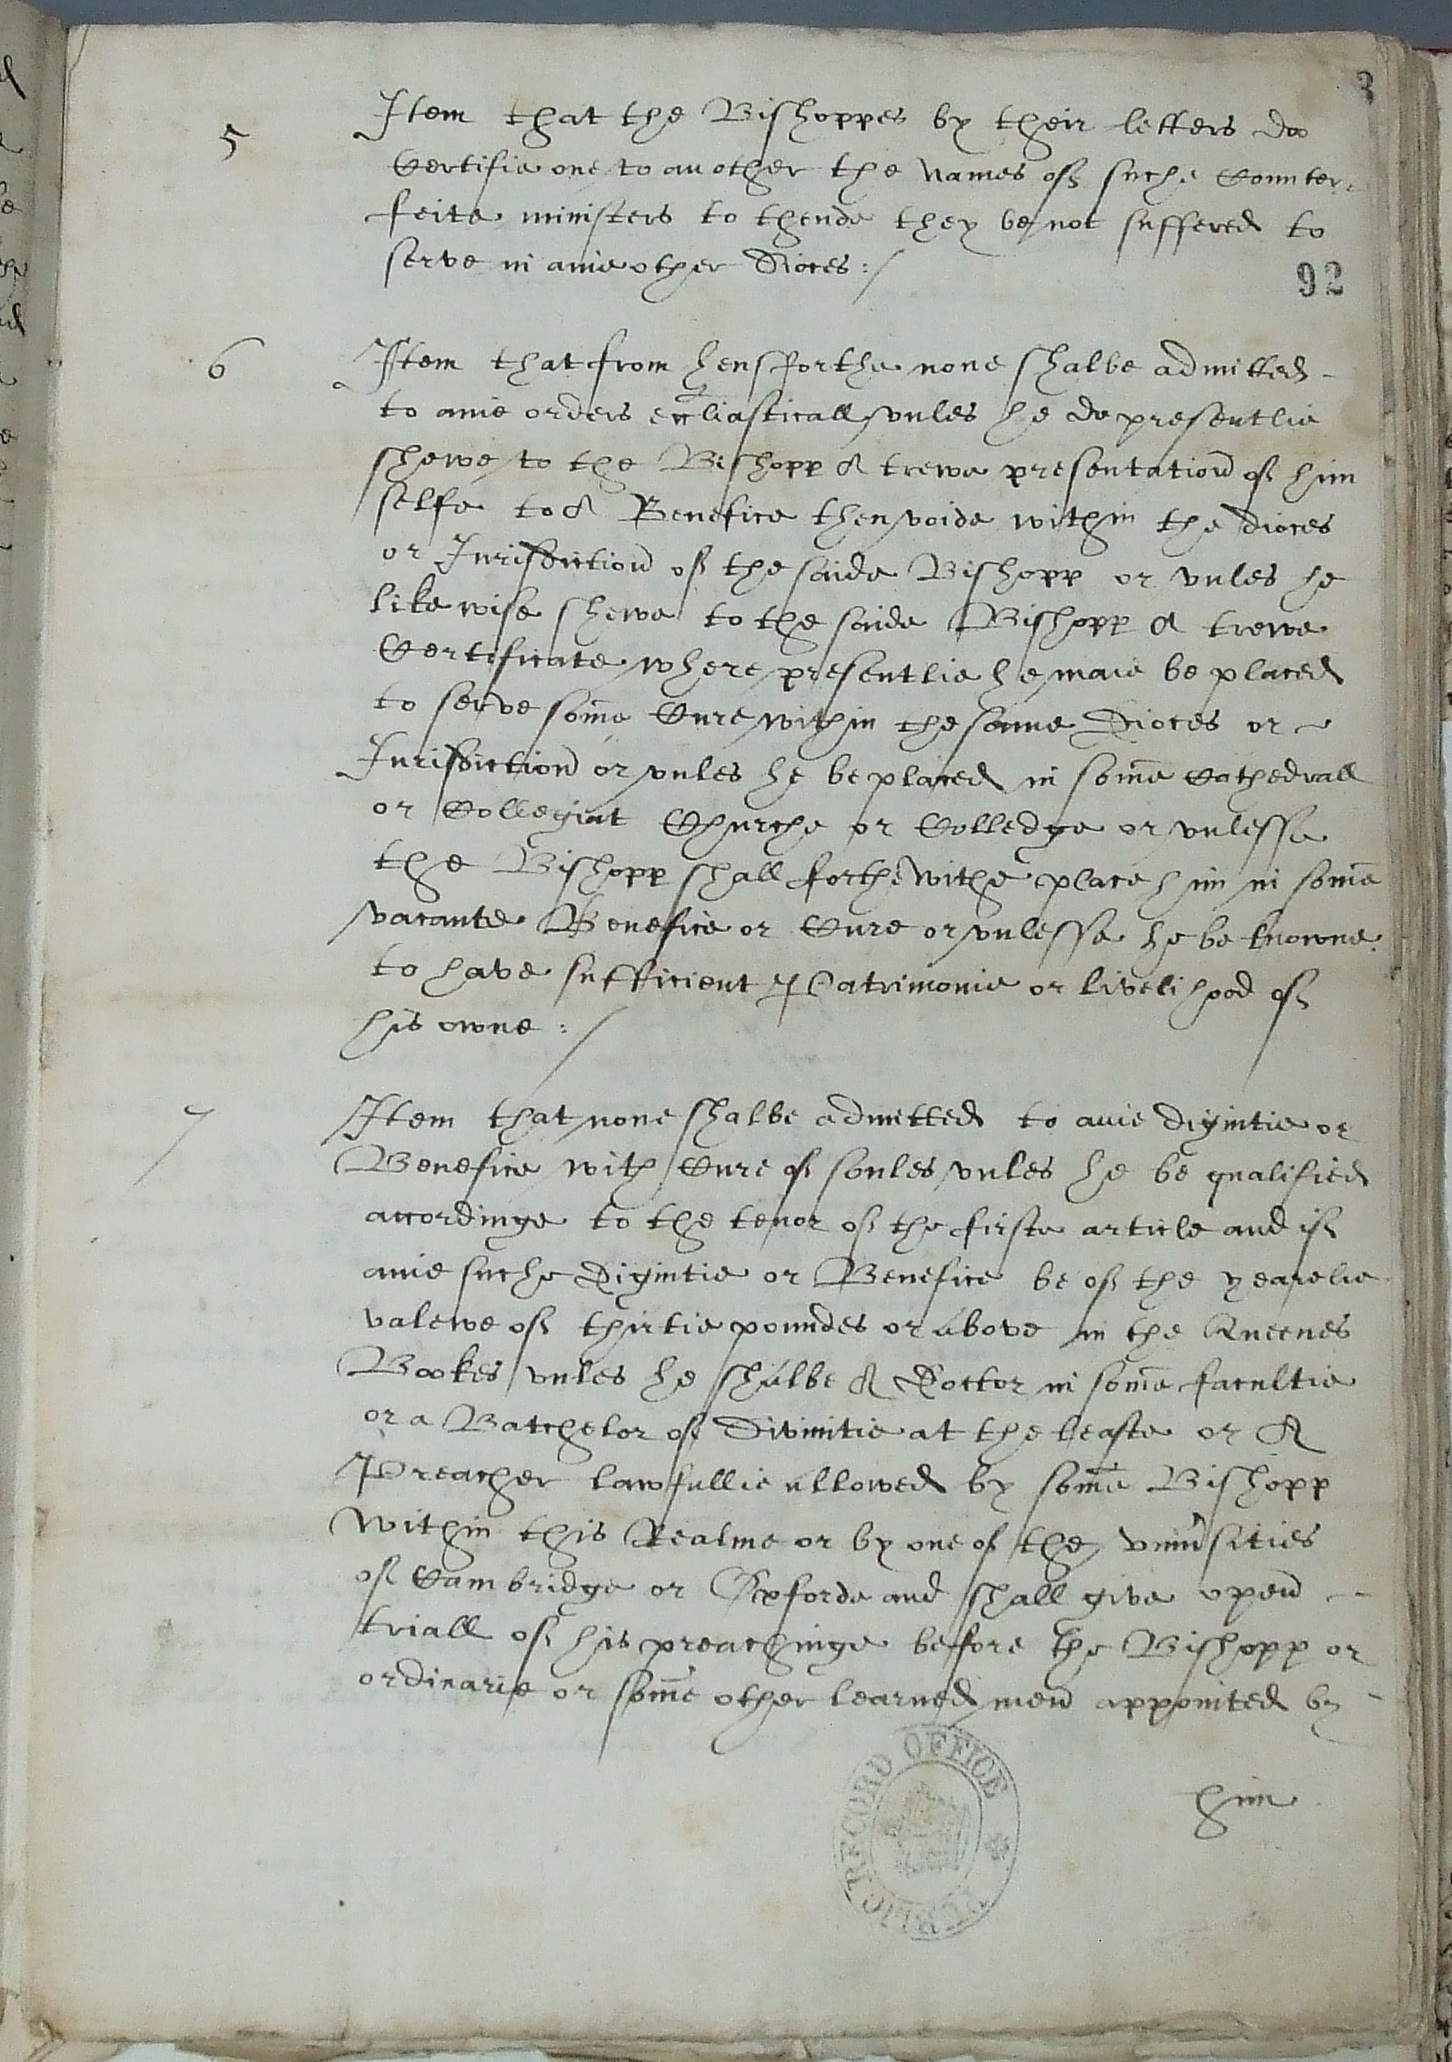 3
5 Item that the Bishoppes by their letters do
Certifie one to another the names of suche Counter=
feite ministers to thende they be not suffered to
serve in anie other Dioces :/
92
6 Item that from hensforthe none shalbe admitted -
to anie orders eccliasticall vnles he do presentlie
shewe to the Bishopp A trewe presentation of him
selfe to A Benefice then voide within the dioces
or Jurisdiction of the saide Bishopp or vnles he
likewise shewe to the saide Bishopp A trewe
Certificate where presentlie he maie be placed
to serve some Cure within the same Dioces or -
Jurisdiction or vnles he be placed in some Cathedrall
or Collegiat Churche or Colledge or vnlesse
the Bishopp shall forthe withe place him in some
vacante Benefice or Cure or vnlesse he be knowne
to have sufficient Patrimonie or livelihood of
his owne :/
7 Item that none shalbe admitted to anie dignitie or
Benefice with Cure of soules vnles he be qualified
accordinge to the tenor of the firste article and if
anie suche Dignitie or Benefice be of the yearelie
valewe of thirtie poundes or above in the Queenes
Bookes vnles he shalbe A Doctor in some facultie
or a Batchelor of Divinitie at the leaste or A
Preacher lawfullie allowed by some Bishopp
within this Realme or by one of the vniu'sities
of Cambridge or Oxforde and shall give open -
triall of his preachinge before the Bishopp or
ordinarie or some other learned men appointed by -
him
PUBLIC RECORD OFFICE